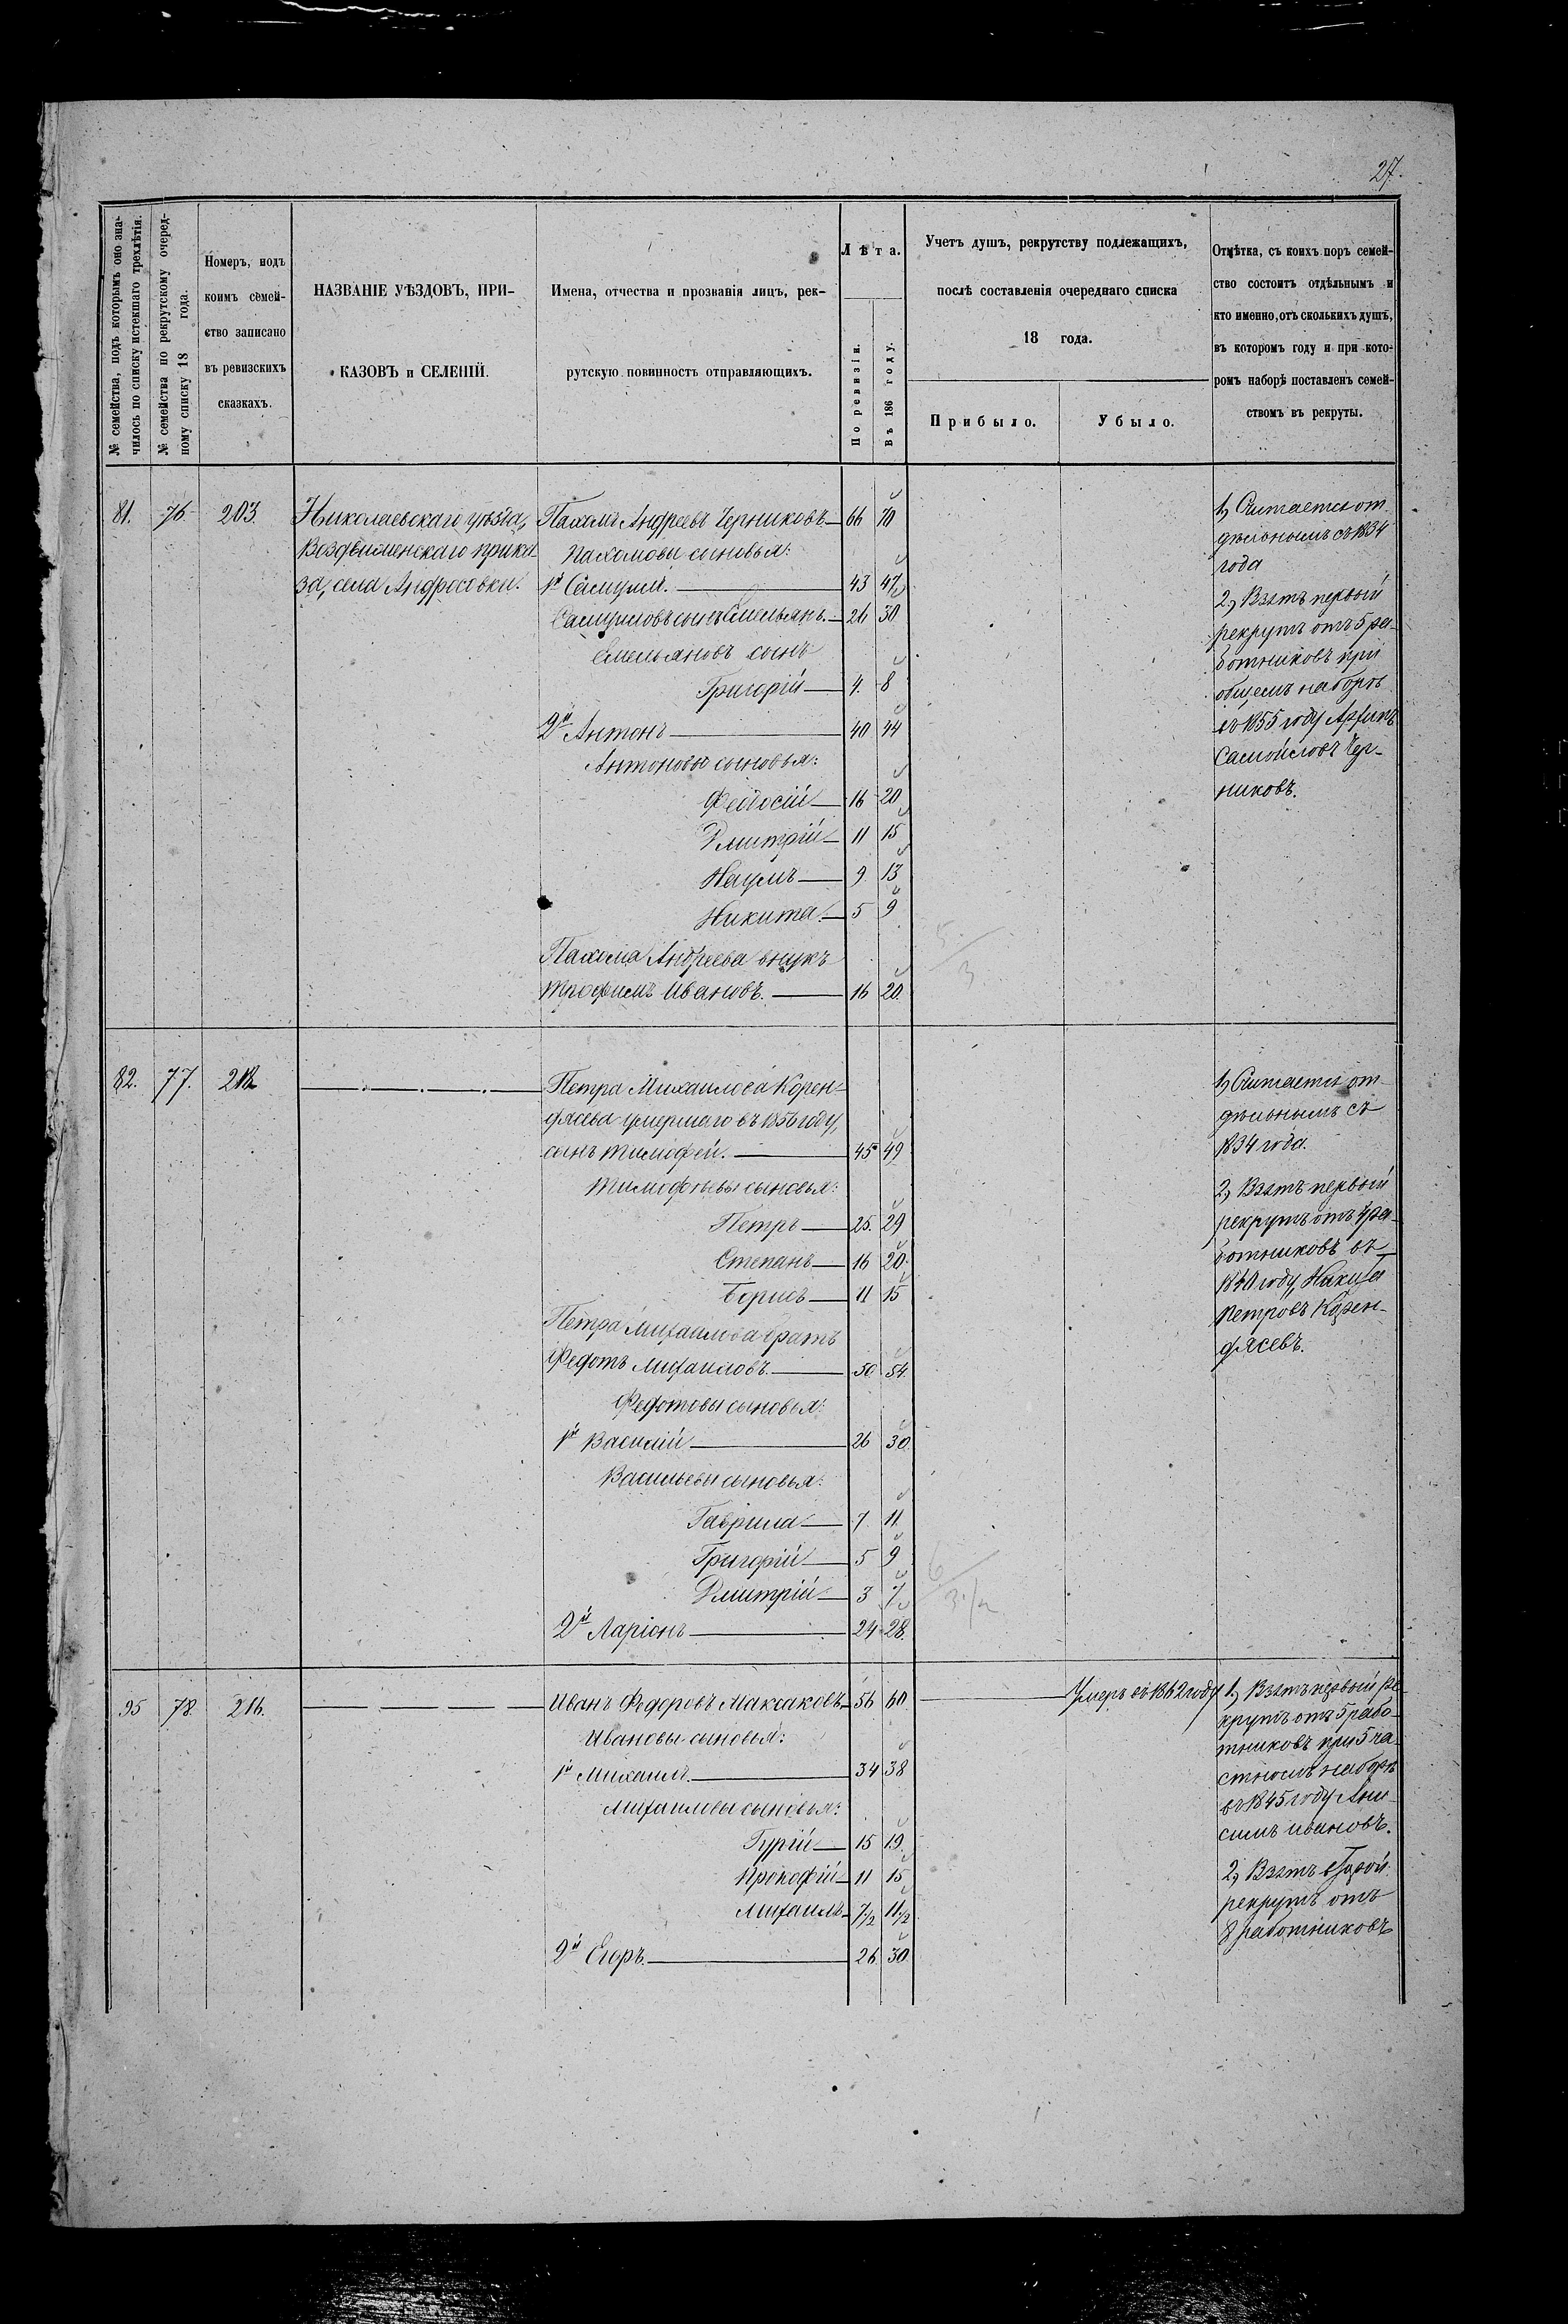 27.
№ семейства, подъ которымъ оно зна-
чилось по списку истекшаго трехлѣтія.
№ семейства по рекрутскому очеред-
ному списку 18 года.
Номеръ, подъ
коимъ семей-
ство записано
въ ревизскихъ
сказкахъ.
НАЗВАНІЕ УѢЗДОВЪ, ПРИ-
КАЗОВЪ и СЕЛЕНІЙ.
Имена, отчества и прозванія лицъ, рек-
рутскую повинность отправляющихъ.
Лѣта.
По ревизіи.
Въ 186 году.
Учетъ душъ, рекрутству подлежащихъ,
послѣ составленія очереднаго списка
18 года.
Прибыло.
Убыло.
Отмѣтка, съ коихъ поръ семей-
ство состоитъ отдѣльнымъ и
кто именно, отъ сколькихъ душъ,
въ которомъ году и при кото-
ромъ наборѣ поставленъ семей-
ствомъ въ рекруты.
81. 76. 203.
Николаевскаго уѣзда,
Воздвиженскаго прика-
за, села Андросовки.
Пахомъ Андреевъ Черниковъ. 66 70
Пахомовы сыновья:
1й Самуилъ. 43 47
Самуиловъ сынъ Емельянъ. 26 30
Емельяновъ сынъ
Григорій 4. 8
2й Антонъ 40 44
Антоновы сыновья:
Федосій 16 20
Дмитрій 11 15
Наумъ 9 13
Никита. 5 9
5/3
Пахома Андреева внукъ
Трофимъ Ивановъ. 16 20.
1, Считается от-
дѣльнымъ съ 1834
года
2, Взятъ первый
рекрутъ отъ 5 ра-
ботниковъ при
общемъ наборѣ
въ 1855 году
Самойловъ Чер-
никовъ.
82. 77. 212
Петра Михаилова Корен-
дясева умершаго въ 1856 году,
сынъ Тимофей. 45 49
Тимофѣевы сыновья:
Петръ 25. 29
Степанъ 16 20
Борисъ 11 15
Петра Михаилова братъ
Федотъ Михаиловъ. 50 54.
Федотовы сыновья:
1й Василій 26 30
Васильевы сыновья:
Гаврила 7. 11
Григорій 5 9
Дмитрій 3 7
6/3 1/2
2й Ларіонъ 24 28.
1, Считается от-
дѣльнымъ съ
1834 года.
2, Взятъ первый
рекрутъ отъ 4 ра-
ботниковъ въ
1840 году, Никита
Петровъ Корен-
дясевъ.
95 78. 216.
Иванъ Федоровъ Максаковъ. 56 60 Умеръ въ 1862 году
Ивановы сыновья:
1й Михаилъ. 34 38
Михаиловы сыновья:
Гурій 15 19.
Прокофій 11 15
Михаилъ 7 1/2 11 1/2
2й Егоръ. 26 30.
1, Взятъ первый ре-
крутъ отъ 5 рабо-
тниковъ при 5 ча-
стномъ наборѣ
въ 1845 году Ани-
симъ Ивановъ.
2, Взятъ второй
рекрутъ отъ
8 работниковъ